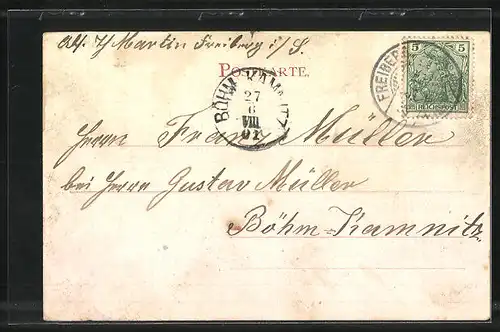 Abs. H Martin Freiberg i/S.
POSTKARTE.
FREIBERG
5 5
REICHSPOST
BÖHM. KAMNITZ
27
6
VIII
01
Herrn Franz Müller
bei Herrn Gustav Müller
Böhm-Kamnitz